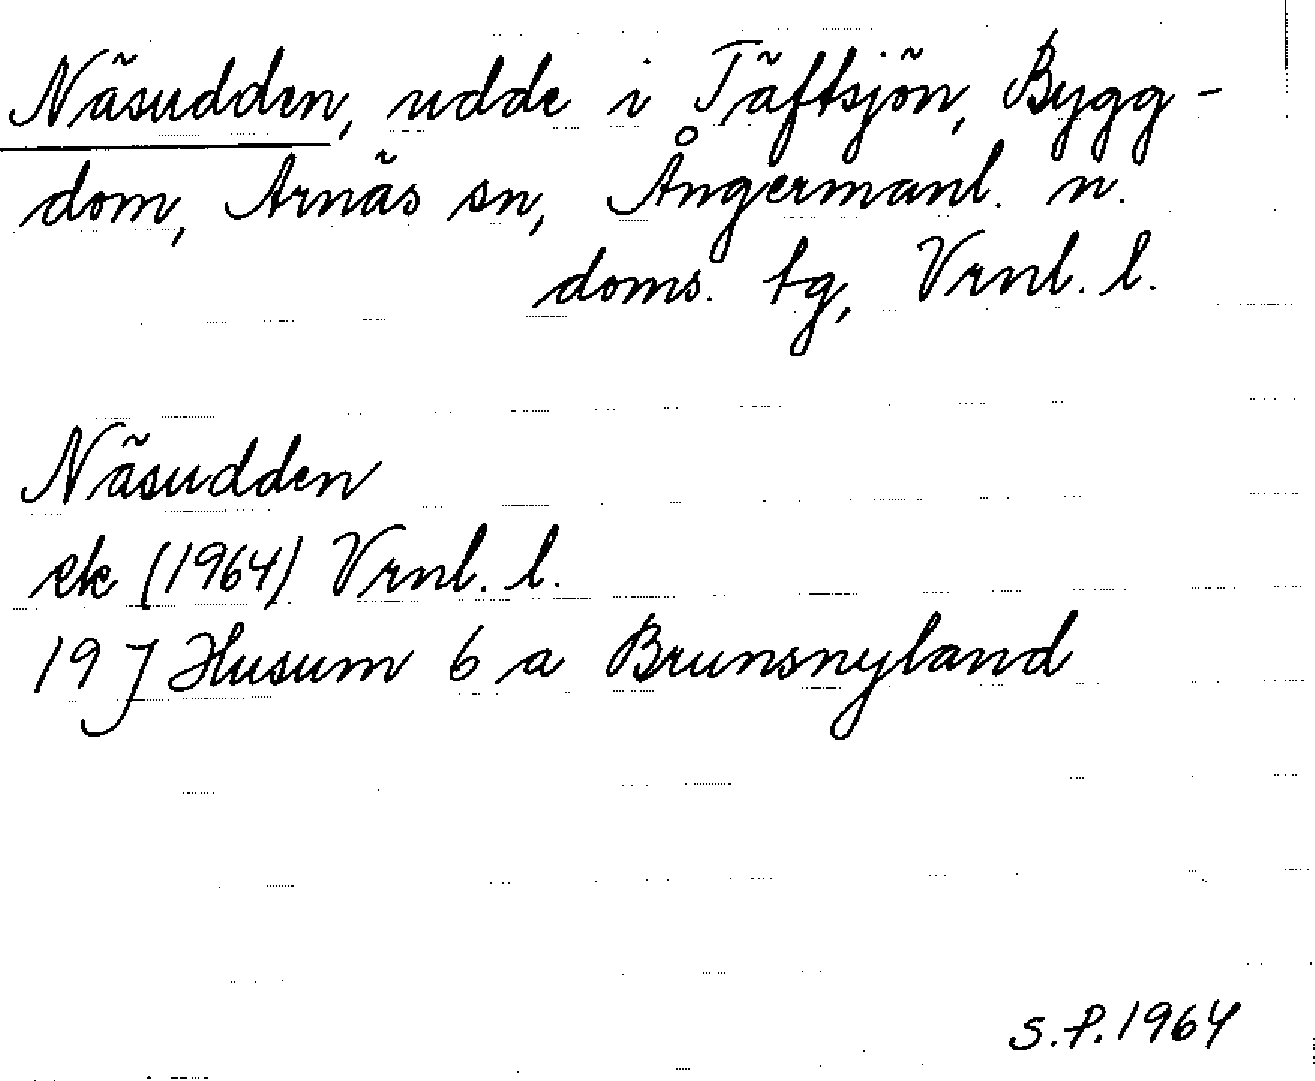 Näsudden, udde i Täftsjön, Bygg-
dom, Arnäs sn, Ångermanl. n.
doms. tg, Vrnl. l.
Näsudden
ek (1964) Vrnl. l.
19 J Husum 6 a Brunsnyland
S.P. 1964